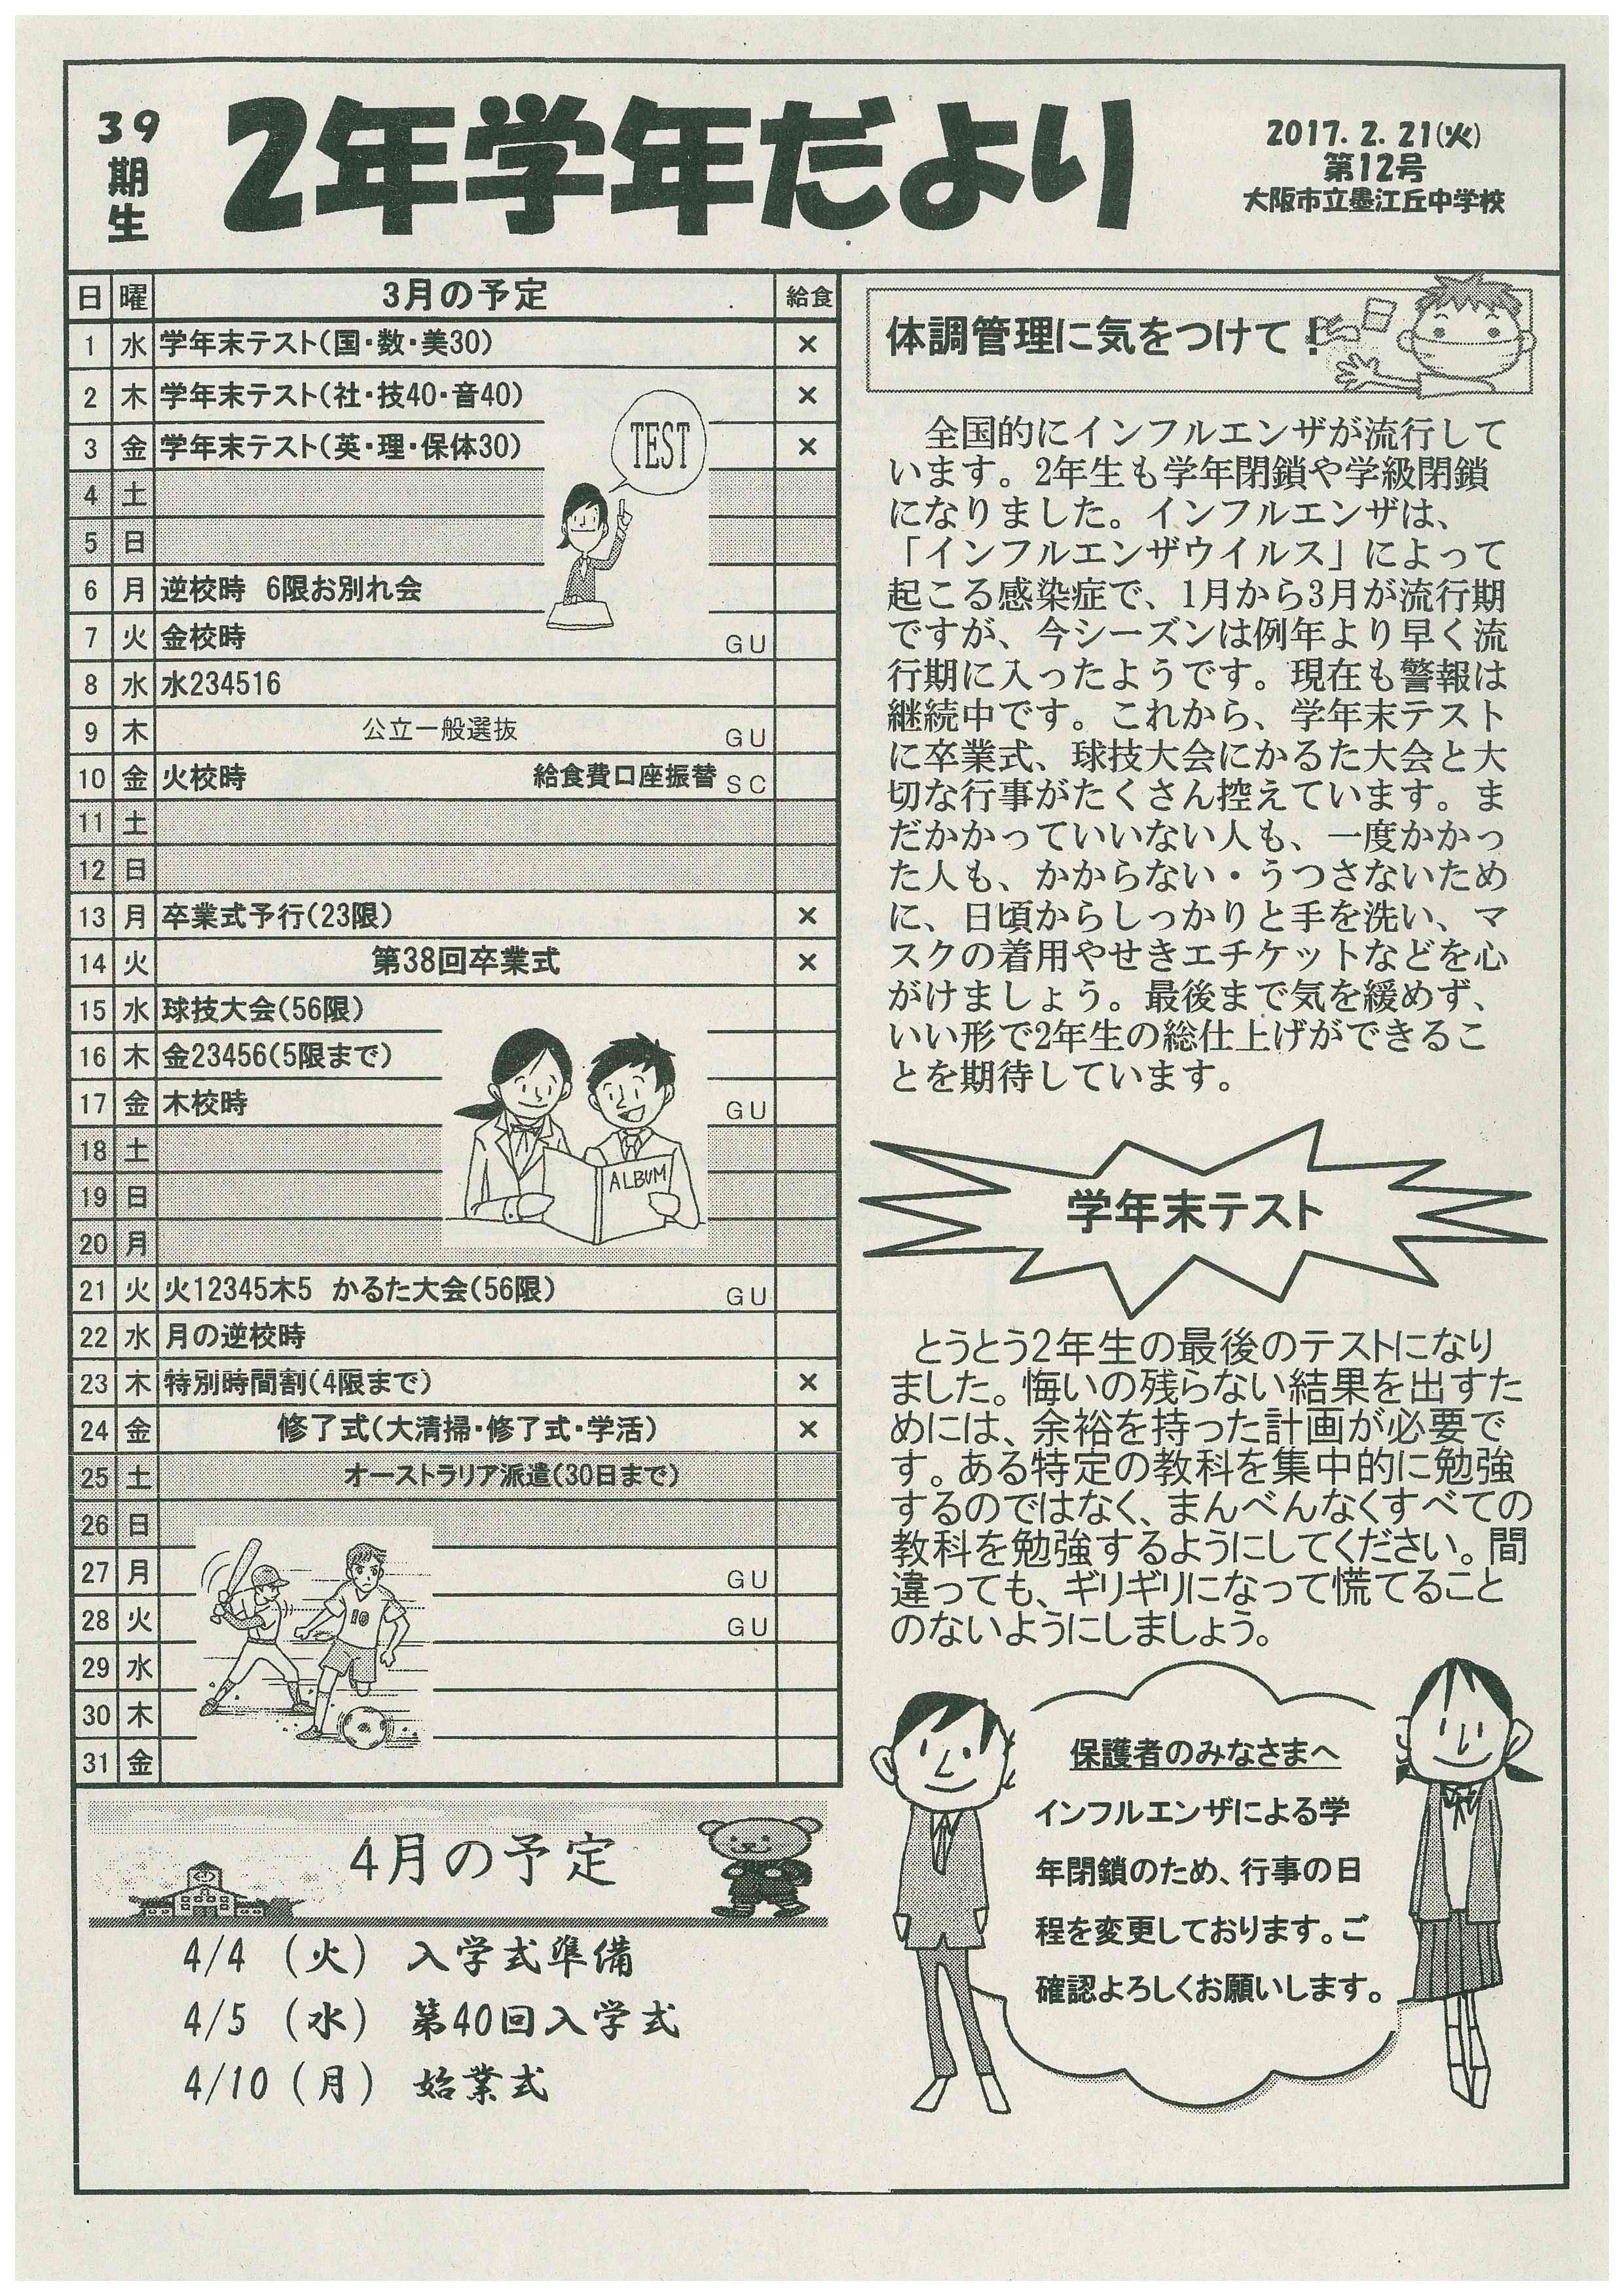 39期生
2年学年だより
2017. 2. 21(火)
第12号
大阪市立墨江丘中学校
日 曜 3月の予定 給食
1 水 学年末テスト(国・数・美30) ×
2 木 学年末テスト(社・技40・音40) ×
3 金 学年末テスト(英・理・保体30) ×
TEST
4 土
5 日
6 月 逆校時 6限お別れ会
7 火 金校時 GU
8 水 水234516
9 木 公立一般選抜 GU
10 金 火校時 給食費口座振替 SC
11 土
12 日
13 月 卒業式予行(23限) ×
14 火 第38回卒業式 ×
15 水 球技大会(56限)
16 木 金23456(5限まで)
17 金 木校時 GU
18 土
ALBUM
19 日
20 月
21 火 火12345木5 かるた大会(56限) GU
22 水 月の逆校時
23 木 特別時間割(4限まで) ×
24 金 修了式(大清掃・修了式・学活) ×
25 土 オーストラリア派遣(30日まで)
26 日
27 月 GU
28 火 GU
10
29 水
30 木
31 金
4月の予定
4/4 (火) 入学式準備
4/5 (水) 第40回入学式
4/10 (月) 始業式
体調管理に気をつけて!
全国的にインフルエンザが流行して
います。2年生も学年閉鎖や学級閉鎖
になりました。インフルエンザは、
「インフルエンザウイルス」によって
起こる感染症で、1月から3月が流行期
ですが、今シーズンは例年より早く流
行期に入ったようです。現在も警報は
継続中です。これから、学年末テスト
に卒業式、球技大会にかるた大会と大
切な行事がたくさん控えています。ま
だかかっていいない人も、一度かかっ
た人も、かからない・うつさないため
に、日頃からしっかりと手を洗い、マ
スクの着用やせきエチケットなどを心
がけましょう。最後まで気を緩めず、
いい形で2年生の総仕上げができるこ
とを期待しています。
学年末テスト
とうとう2年生の最後のテストになり
ました。悔いの残らない結果を出すた
めには、余裕を持った計画が必要で
す。ある特定の教科を集中的に勉強
するのではなく、まんべんなくすべての
教科を勉強するようにしてください。間
違っても、ギリギリになって慌てること
のないようにしましょう。
保護者のみなさまへ
インフルエンザによる学
年閉鎖のため、行事の日
程を変更しております。ご
確認よろしくお願いします。